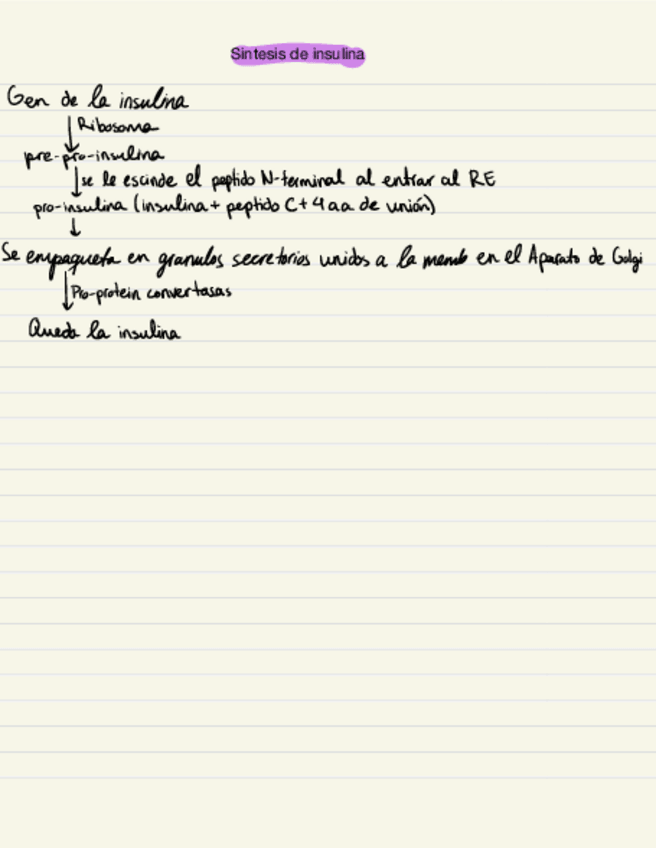 Sintesis de insulina
Gen de la insulina
Ribosoma
pre-pro-insulina
se le escinde el peptido N-terminal al entrar al RE
pro-insulina (insulina + peptido C + 4 aa de unión)
Se empaqueta en granulos secretorios unidos a la memb en el Aparato de Golgi
Pro-protein convertasas
Queda la insulina